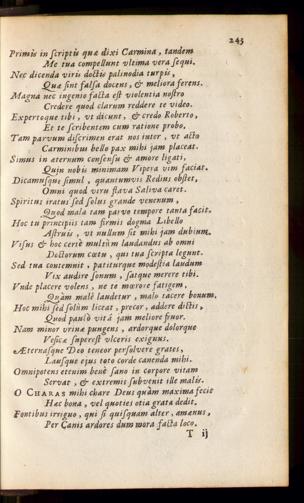 243
Primùm in scriptis quæ dixi Carmina, tandem
Me tua compellunt vltima vera sequi.
Nec dicenda viris doctis palinodia turpis,
Quæ sint falsa docens, & meliora ferens.
Magna nec ingenio facta est violentia nostro
Credere quod clarum reddere te video.
Expertoque tibi, vt dicunt, & credo Roberto,
Et te scribentem cum ratione probo.
Tam parvum discrimen erat nos inter, vt acto
Carminibus bello pax mihi jam placeat.
Simus in æternum consensu & amore ligati,
Quin nobis minimam Vipera vim faciat.
Dicamusque simul, quantumvis Redius obstet,
Omni quod viru flava Saliva caret.
Spiritus iratus sed solus grande venenum,
Quod mala tam parvo tempore tanta facit.
Hoc tu principiis tam firmis dogma Libello
Astruis, vt nullum sit mihi jam dubium.
Visus & hoc certè multùm laudandus ab omni
Doctorum cœtu, qui tua scripta legunt.
Sed tua contemnit, patiturque modestia laudum
Vix audire sonum, satque merere tibi.
Vnde placere volens, ne te mœrore fatigem,
Quàm malè laudetur, malo tacere bonum.
Hoc mihi sed solùm liceat, precor, addere dictis,
Quod paulò vitâ jam meliore fruor.
Nam minor vrinæ pungens, ardorque dolorque
Vesicæ superest vlceris exiguus.
Æternasque Deo teneor persolvere grates,
Lausque ejus toto corde canenda mihi.
Omnipotens etenim benè sano in corpore vitam
Servat, & extremis subvenit ille malis.
O CHARAS mihi chare Deus quàm maxima fecit
Hæc bona, vel quoties otia grata dedit.
Fontibus irriguo, qui si quisquam alter, amœnus,
Per Canis ardores dum mora facta loco.
T ij